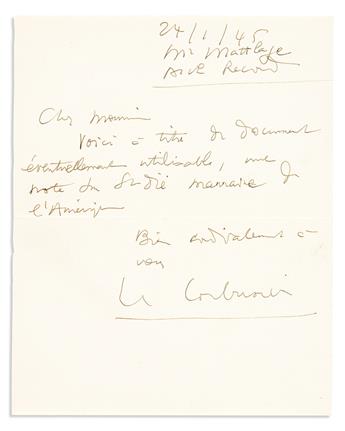 24/1/45
Mr Mattlage
Arch Record
Cher Monsieur
Voici à titre de document
éventuellement utilisable, une
note du St Dié marraine de
l'Amérique
Bien cordialement à
vous
Le Corbusier